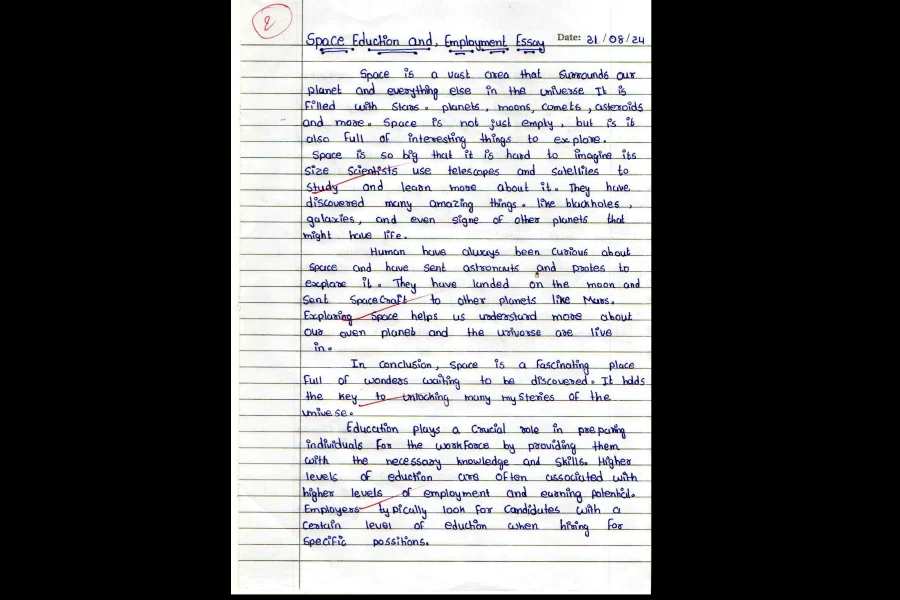 2
Space Eduction and, Employment Essay Date: 31/08/24
Space is a vast area that surrounds our
planet and everything else in the universe It is
filled with stars. planets, moons, comets, asteroids
and more. Space is not just empty, but is it
also full of interesting things to explore.
Space is so big that it is hard to imagine its
size scientists use telescopes and satellites to
study and learn more about it. They have
discovered many amazing things. like blackholes,
galaxies, and even signe of other planets that
might have life.
Human have always been curious about
space and have sent astronauts and probes to
explore it. They have landed on the moon and
sent SpaceCraft to other planets like Mars.
Exploring space helps us understand more about
our oven planet and the universe are live
in.
In conclusion, space is a fascinating place
full of wonders waiting to be discovered. It holds
the key to unlocking many mysteries of the
unive se.
Education plays a crucial role in preparing
individuals for the workforce by providing them
with the necessary knowledge and skills. Higher
levels of eduction are often associated with
higher levels of employment and earning potential.
Employers typically look for candidates with a
certain level of eduction when hiring for
specific possitions.